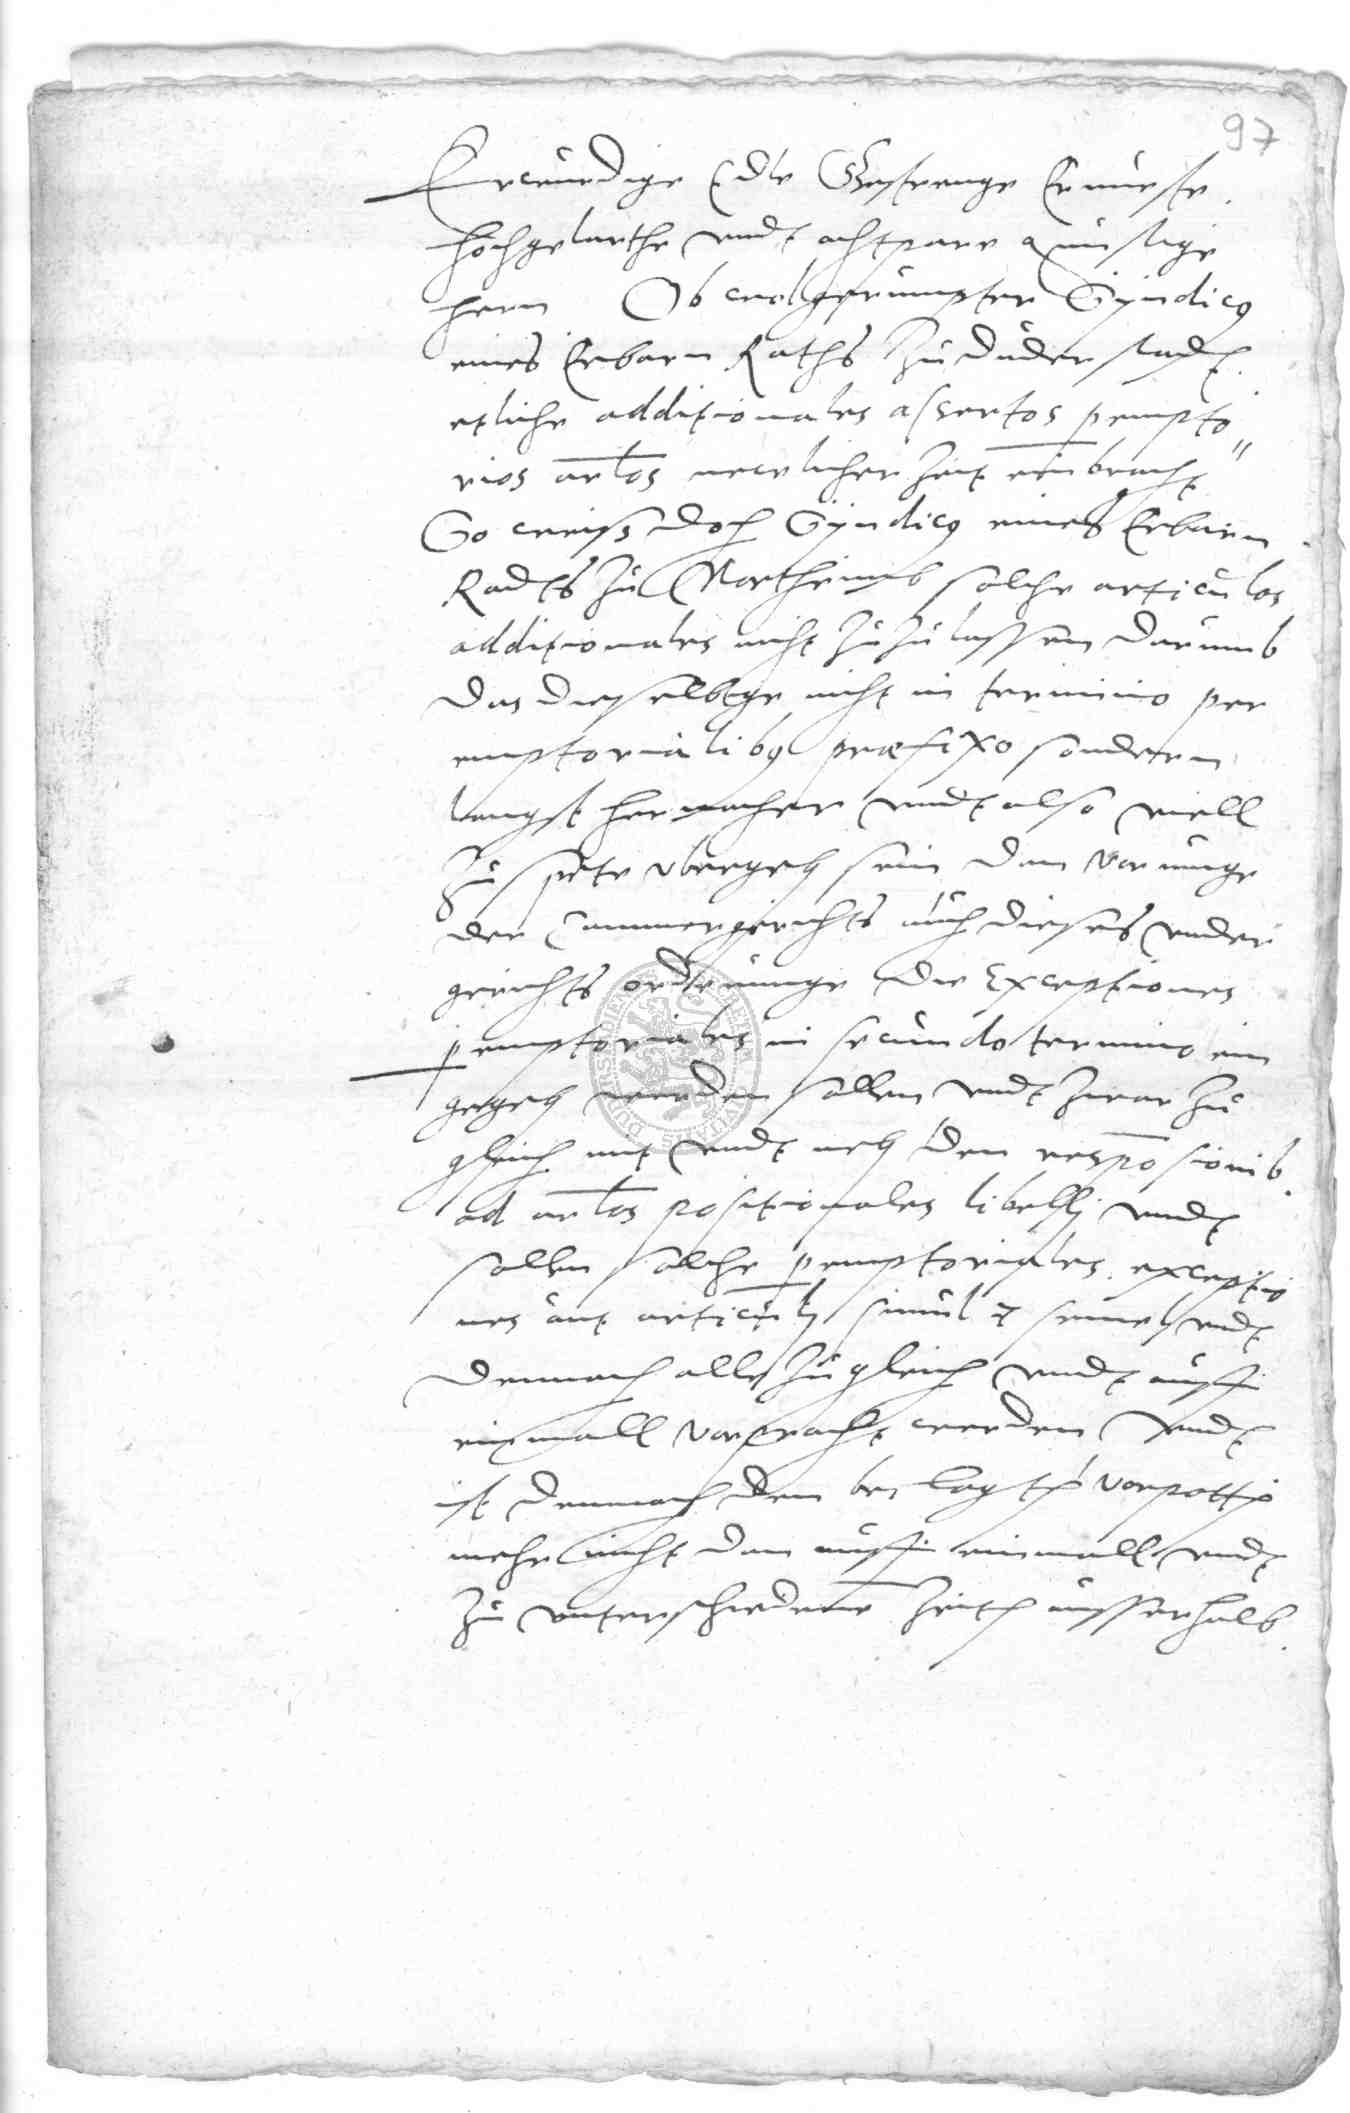 97
Erwurdige Edle Gestrenge Ernueste
hochgelarthe vndt achtpare gunstige
hern Ob wol gerumpter Syndicq
eines Erbarn Raths zu Duderstadt
etliche additionales assertos pempto
rios arlos newlicher Zeit einbracht
So weiß doch Syndicq eines Erbarn
Radts zu Northeimb solche articulos
additionales nicht zuzulassen darumb
das dieselbige nicht in termino per
emptorialibq præfixo sondern
langst hernacher vndt also viell
zu spete vbergeb sein dan vermuge
der Cammergerichts auch dieses vnder
gerichts ordenunge die Exceptiones
pemptoriales in secundo termino ein
gegeb werden sollen vndt zwar zu
gleich mit vndt neb den responsionib
ad arlos positionales libelli vndt
sollen solche pemptoriales exceptio
nes aut articuli simul & semel vndt
demnach alle zugleich vndt auff
einmall vorpracht werden vndt
ist demnach den beclagten vorpotten
mehr nicht dan auff einmall vndt
zu vnterschiedene Zeiten ausserhalb